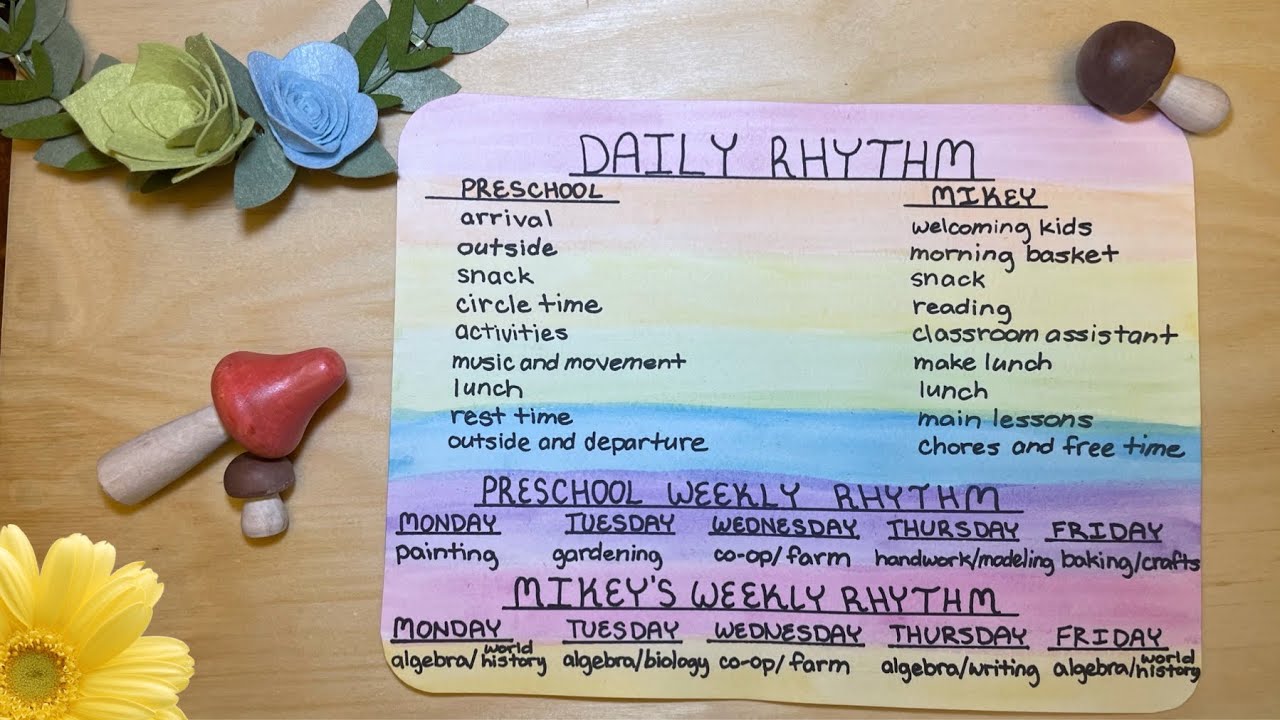 DAILY RHYTHM
PRESCHOOL
arrival
outside
snack
circle time
activities
music and movement
lunch
rest time
outside and departure
MIKEY
welcoming kids
morning basket
snack
reading
classroom assistant
make lunch
lunch
main lessons
chores and free time
PRESCHOOL WEEKLY RHYTHM
MONDAY TUESDAY WEDNESDAY THURSDAY FRIDAY
painting gardening co-op/farm handwork/modeling baking/crafts
MIKEY'S WEEKLY RHYTHM
MONDAY TUESDAY WEDNESDAY THURSDAY FRIDAY
algebra/world history algebra/biology co-op/farm algebra/writing algebra/world history